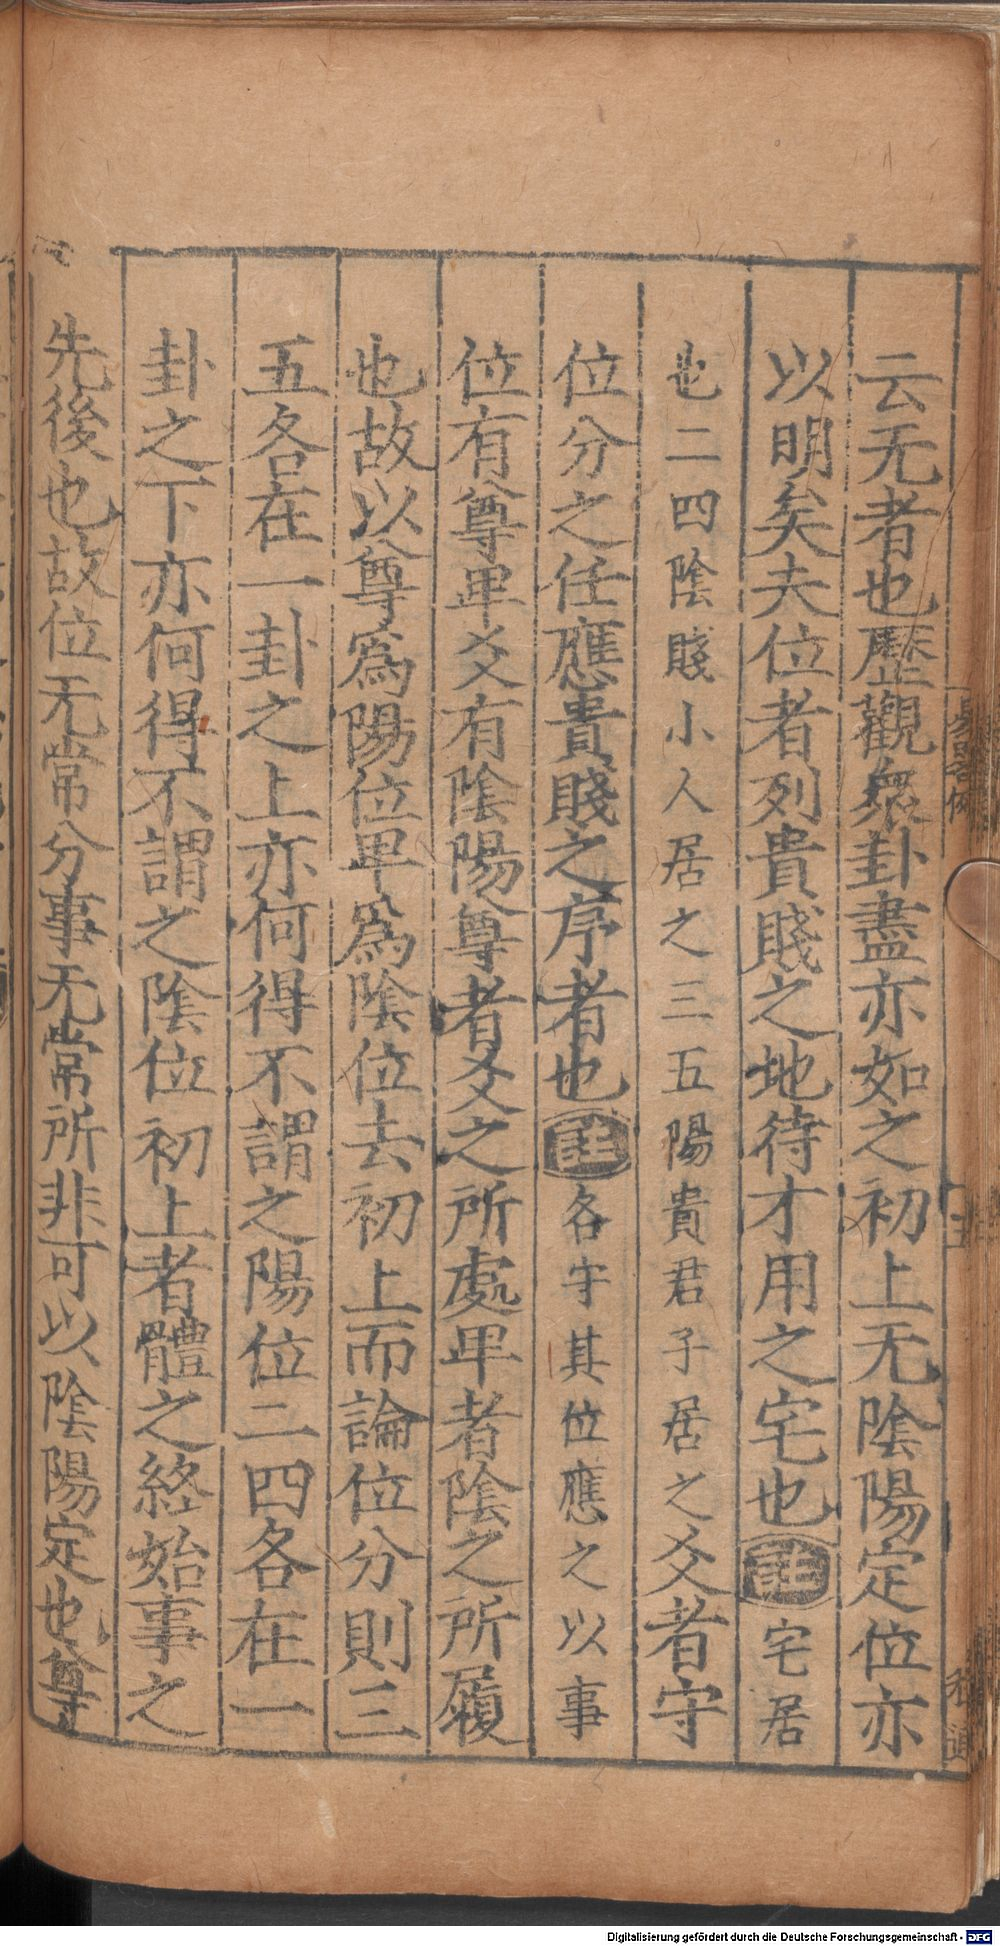 云无者也歷觀衆卦盡亦如之初上无陰陽定位亦
以明矣夫位者列貴賤之地待才用之宅也註宅居
也二四陰賤小人居之三五陽貴君子居之爻者守
位分之任應貴賤之序者也註各守其位應之以事
位有尊卑爻有陰陽尊者爻之所處卑者陰之所履
也故以尊爲陽位卑爲陰位去初上而論位分則三
五各在一卦之上亦何得不謂之陽位二四各在一
卦之下亦何得不謂之陰位初上者體之終始事之
先後也故位无常分事无常所非可以陰陽定也尊
Digitalisierung gefördert durch die Deutsche Forschungsgemeinschaft - DFG